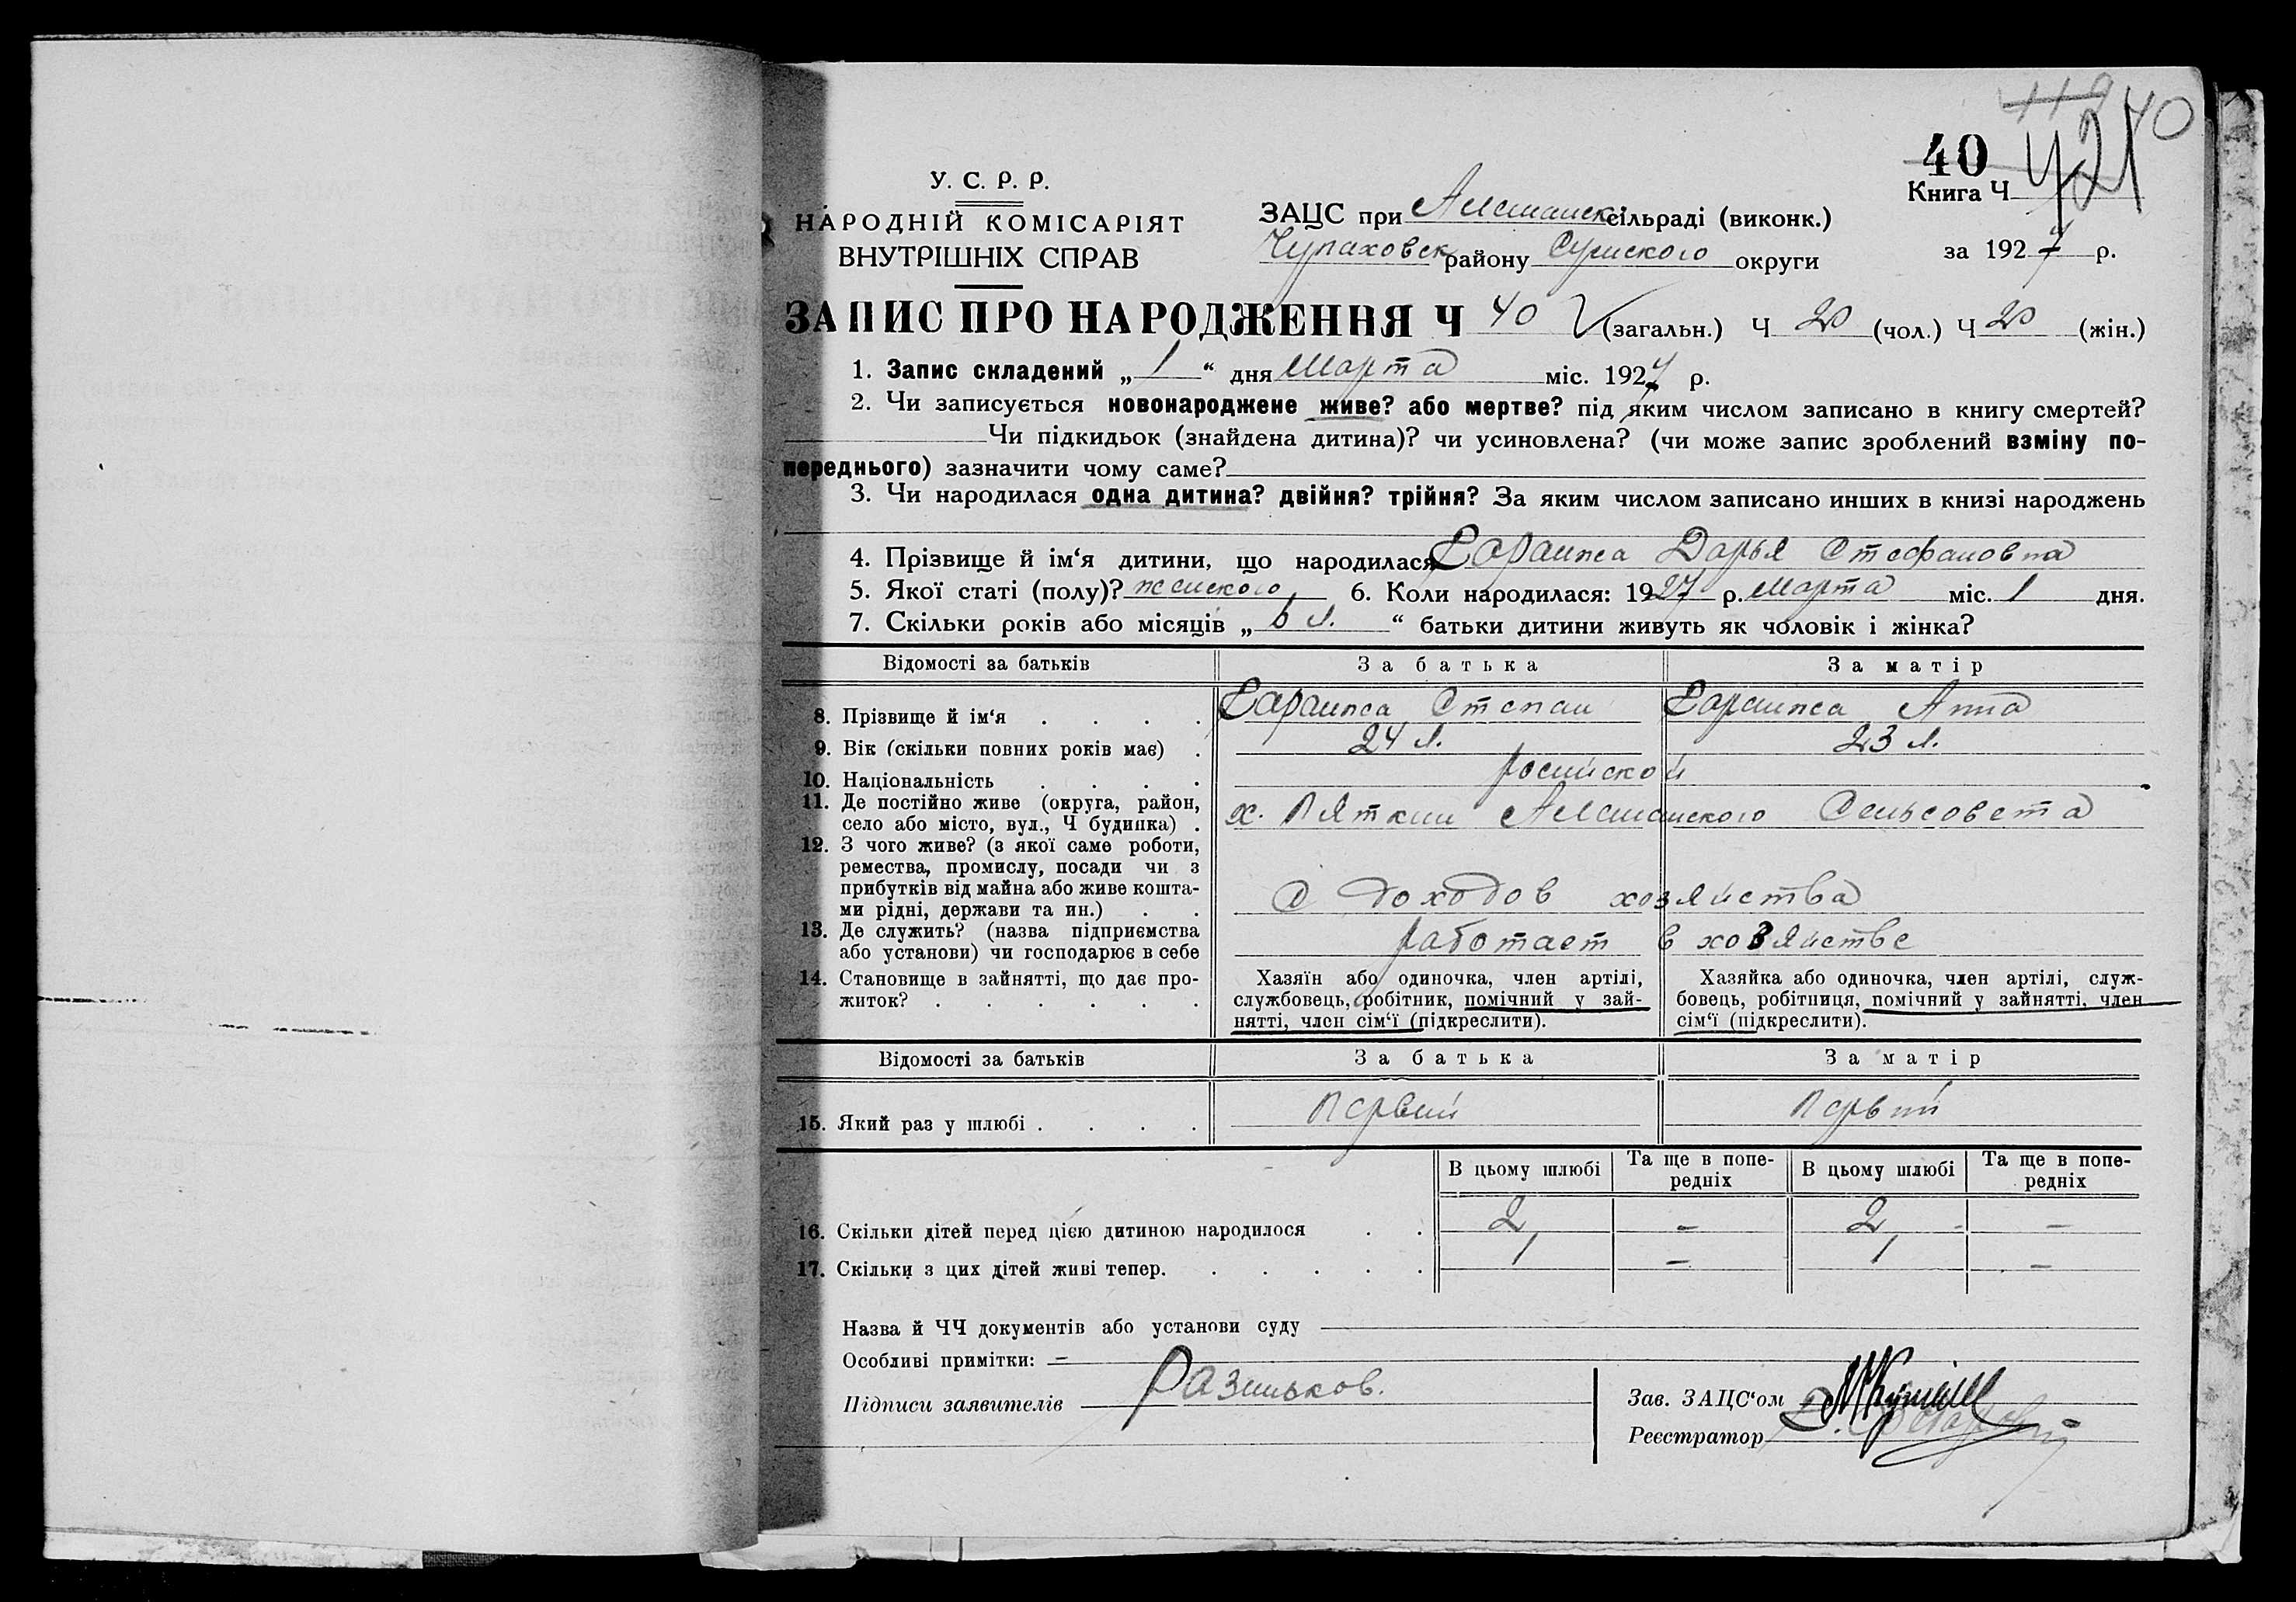 119 40
40 421
У. С. Р. Р.
НАРОДНІЙ КОМІСАРІЯТ
ВНУТРІШНІХ СПРАВ
Книга Ч
ЗАЦС при Алешанск. сільраді (виконк.)
Чупаховск району Сумского округи
за 1927 р.
ЗАПИС ПРО НАРОДЖЕННЯ Ч 40 (загальн.) Ч 20 (чол.) Ч 20 (жін.)
1. Запис складений „ 1 “ дня Марта міс. 1927 р.
2. Чи записується новонароджене живе? або мертве? під яким числом записано в книгу смертей?
Чи підкидьок (знайдена дитина)? чи усиновлена? (чи може запис зроблений взміну по-
переднього) зазначити чому саме?
3. Чи народилася одна дитина? двійня? трійня? За яким числом записано инших в книзі народжень
4. Прізвище й ім‘я дитини, що народилася Саранча Дарья Стефановна
5. Якої статі (полу)? женского 6. Коли народилася: 1927 р. марта міс. 1 дня.
7. Скільки років або місяців „ 6 л. “ батьки дитини живуть як чоловік і жінка?
Відомості за батьків За батька За матір
8. Прізвище й ім‘я . . . . Саранча Степан Саранча Анна
9. Вік (скільки повних років має) . 24 л. 23 л.
10. Національність . . . . росийской
11. Де постійно живе (округа, район,
село або місто, вул., Ч будинка) . х. Пяткин Алешанского Сельсовета
12. З чого живе? (з якої саме роботи,
ремества, промислу, посади чи з
прибутків від майна або живе кошта-
ми рідні, держави та ин.) . . С доходов хозяйства
13. Де служить? (назва підприємства
або установи) чи господарює в себе работает в хозяйстве
14. Становище в зайнятті, що дає про-
житок? . . . . . .
Хазяїн або одиночка, член артілі,
службовець, робітник, помічний у зай-
нятті, член сім‘ї (підкреслити).
Хазяйка або одиночка, член артілі, служ-
бовець, робітниця, помічний у зайнятті, член
сім‘ї (підкреслити).
Відомості за батьків За батька За матір
15. Який раз у шлюбі . . . . Первий Первий
В цьому шлюбі Та ще в попе-
редніх В цьому шлюбі Та ще в попе-
редніх
16. Скільки дітей перед цією дитиною народилося . . 2 – 2 –
17. Скільки з цих дітей живі тепер. . . . . . 1 – 1 –
Назва й ЧЧ документів або установи суду
Особливі примітки: –
Підписи заявителів Разиньков.
Зав. ЗАЦС‘ом
Реєстратор